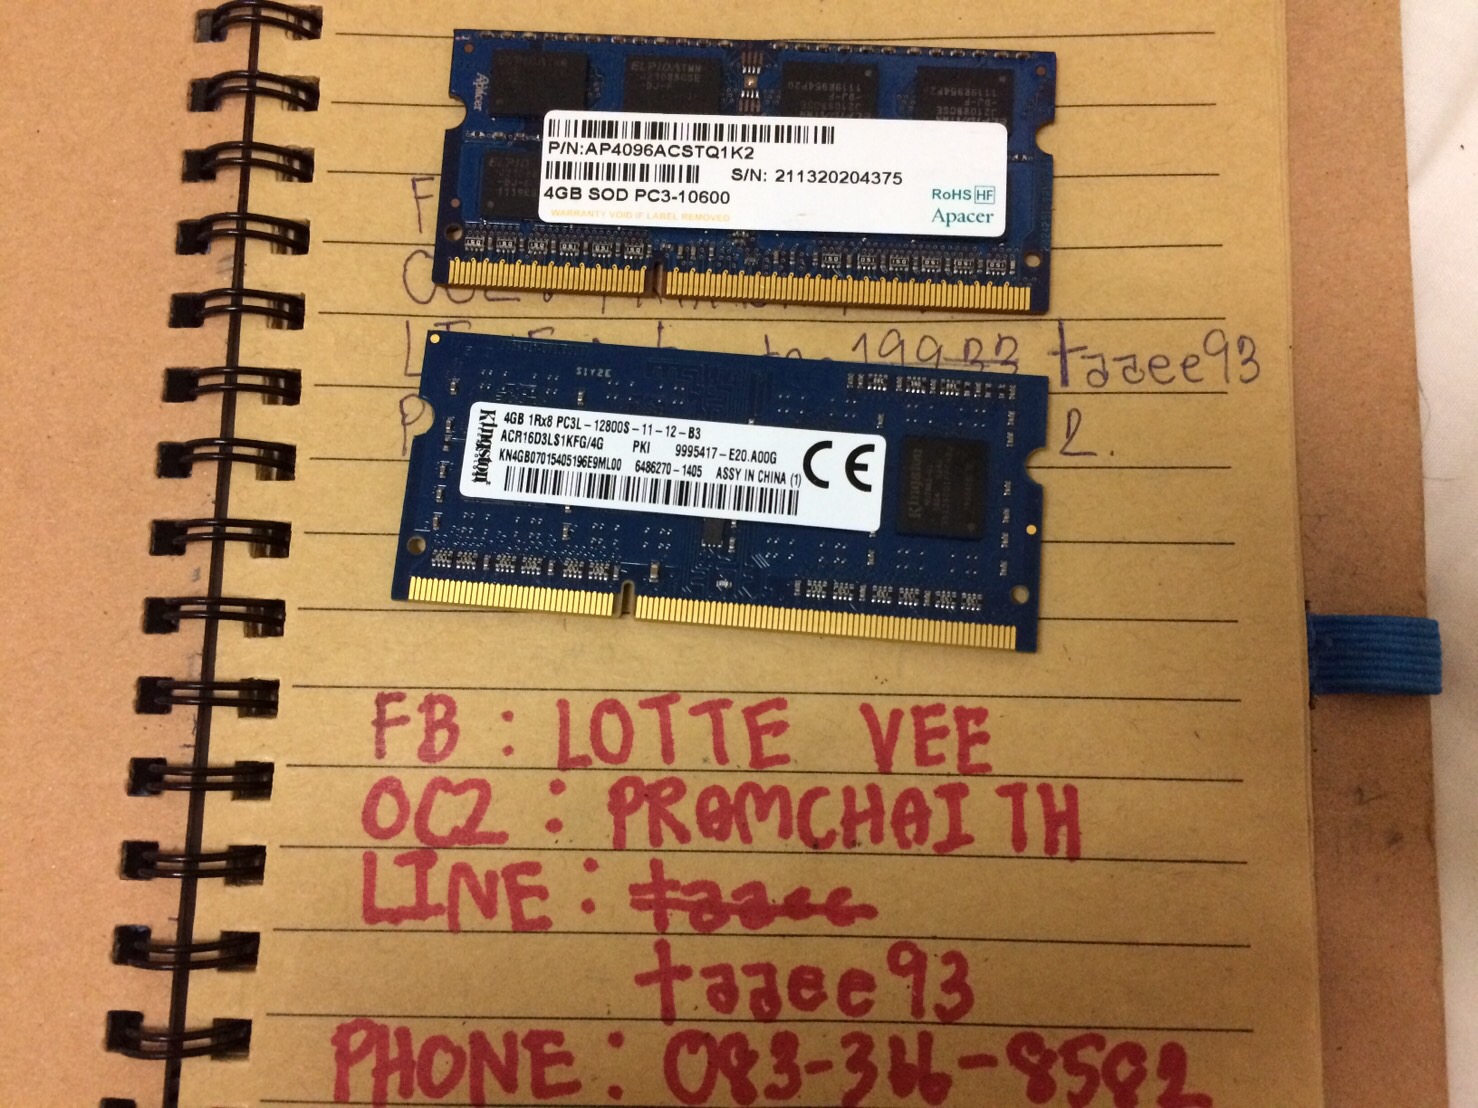 Apacer
P/N:AP4096ACSTQ1K2
S/N: 211320204375
4GB SOD PC3-10600
RoHS HF
WARRANTY VOID IF LABEL REMOVED
Apacer
taaee93
S1Y2E
Kingston
4GB 1Rx8 PC3L-12800S-11-12-B3
ACR16D3LS1KFG/4G PKI 9995417-E20.A00G
KN4GB07015405196E9ML00 6486270-1405 ASSY IN CHINA (1)
CE
2.
FB : LOTTE VEE
OC2 : PRAMCHAITH
LINE : taaee
taaee93
PHONE : 083-366-8582